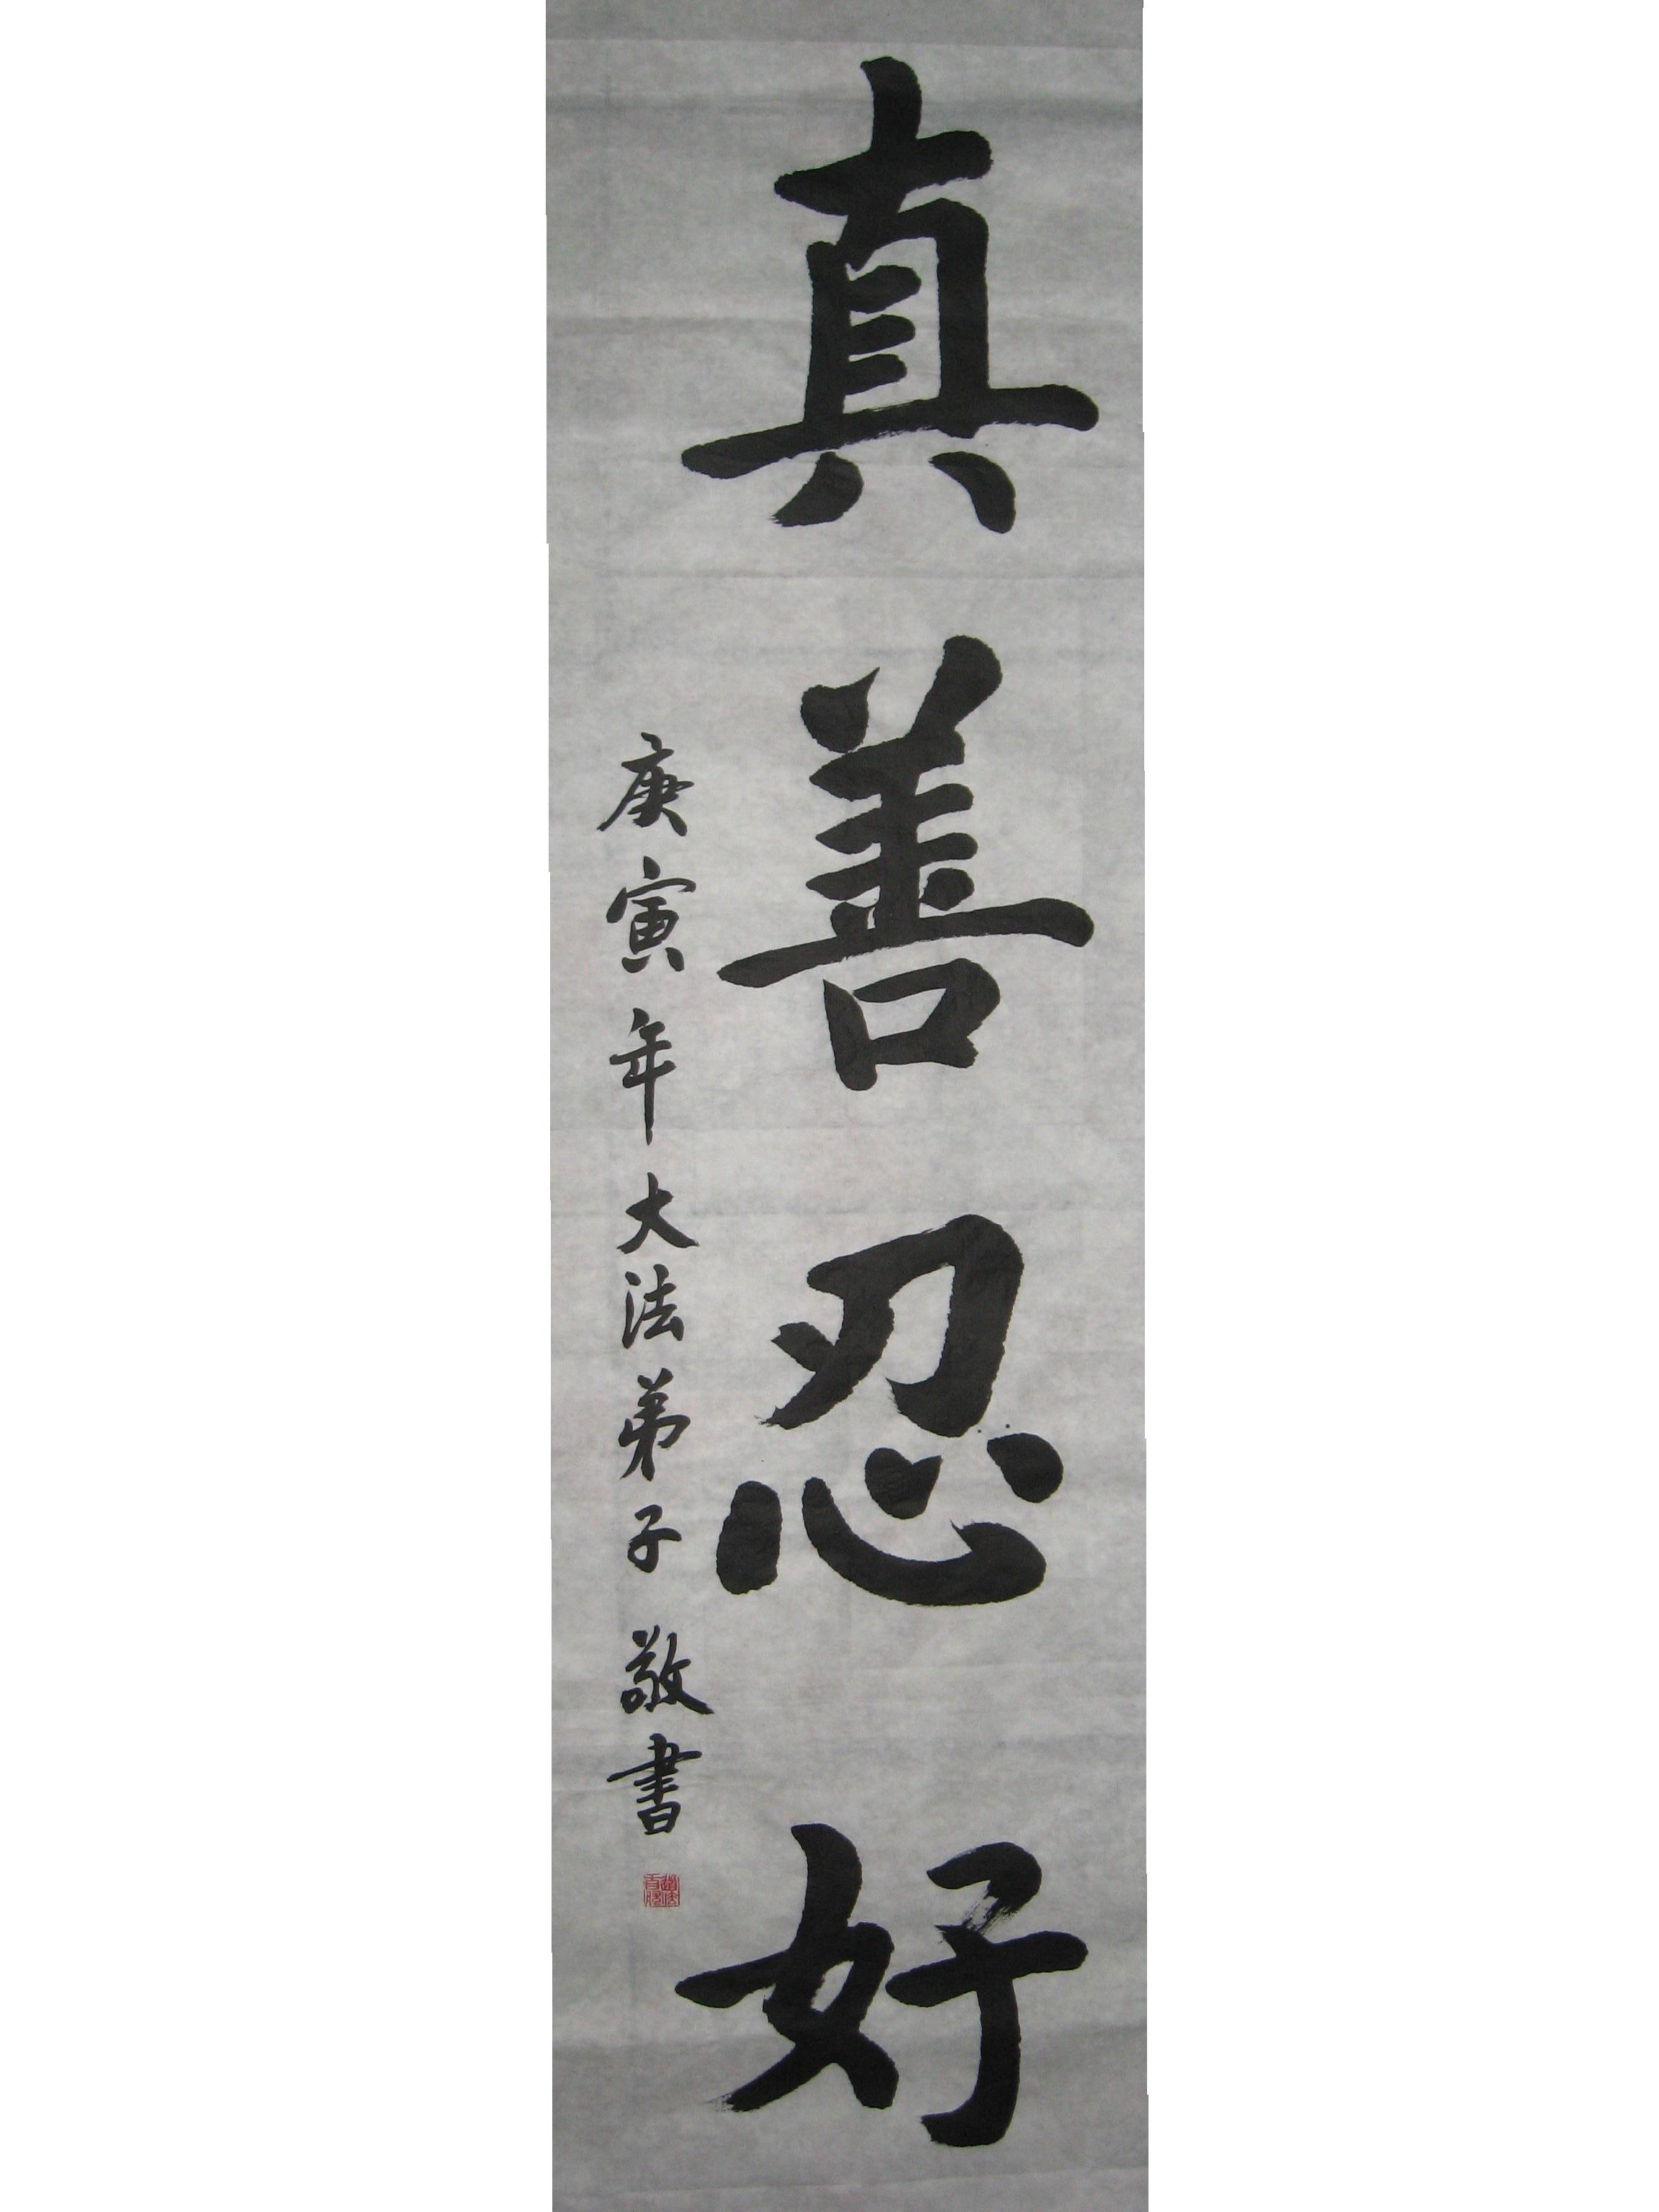 真善忍好
庚寅年大法弟子敬書